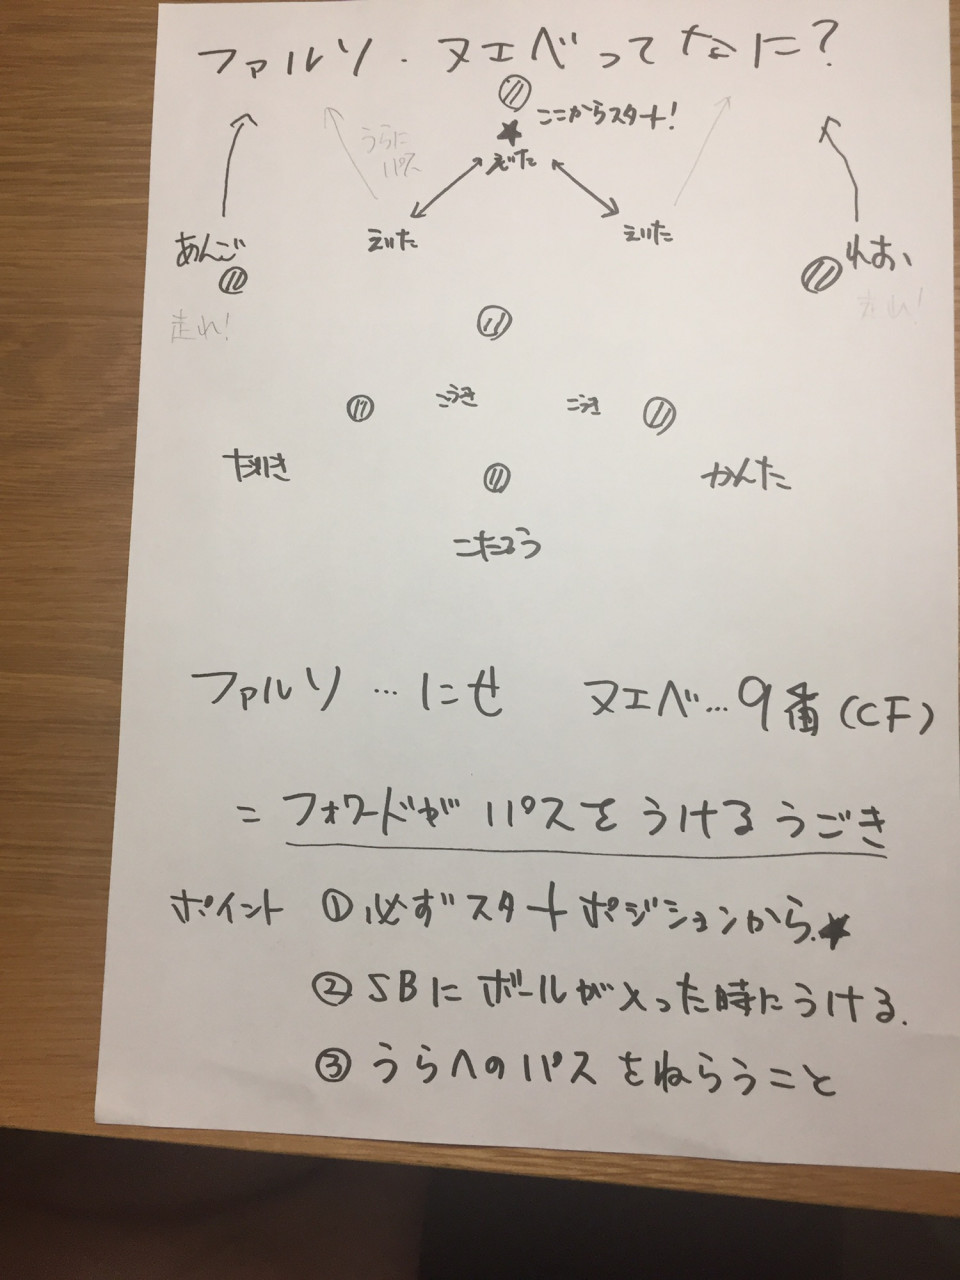 ファルソ・ヌエベってなに?
ここからスタート!
うらに
パス
えいた
えいた
えいた
あんご
れお
走れ!
走れ!
こうき
こうき
だいき
かんた
こたろう
ファルソ…にせ ヌエベ…9番(CF)
=フォワードがパスをうけるうごき
ポイント ①必ずスタートポジションから.★
②SBにボールが入った時にうける.
③うらへのパスをねらうこと